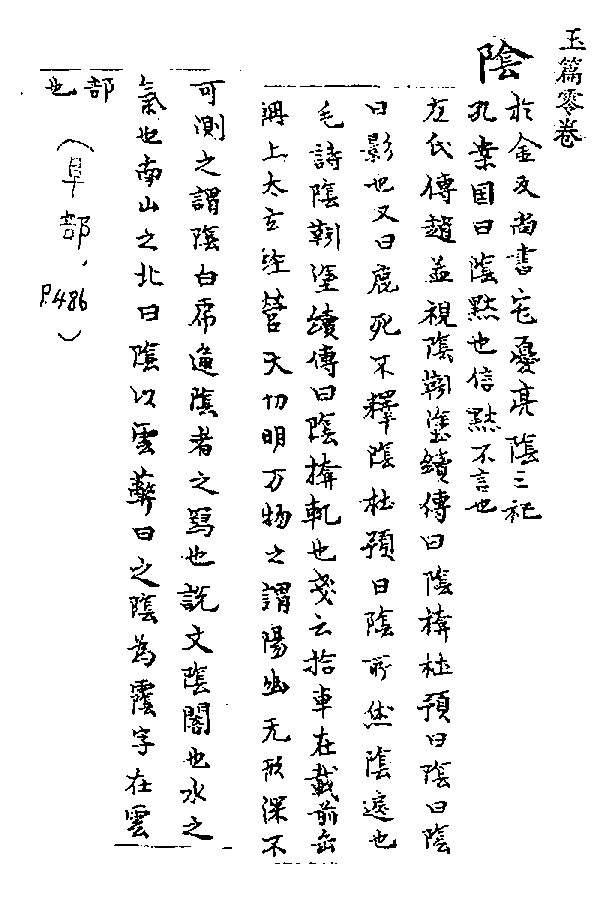 玉篇零卷
陰
於金反尚書宅憂亮陰三祀
孔安国曰陰黙也信黙不言也
左氏傳趙孟視陰靷鋈續傳曰陰揜杜預曰陰曰陰
曰影也又曰鹿死不釋陰杜預曰陰所烋陰處也
毛詩陰靷鋈續傳曰陰揜軓也戔云揜車在載前
上太玄經營天功明万物之謂陽幽无形深不
可測之謂陰白帝通陰者之爲也說文陰闇也水之
氣也南山之北曰陰以雲蔽日之陰為霒字在雲
部也
(阜部, P.486)